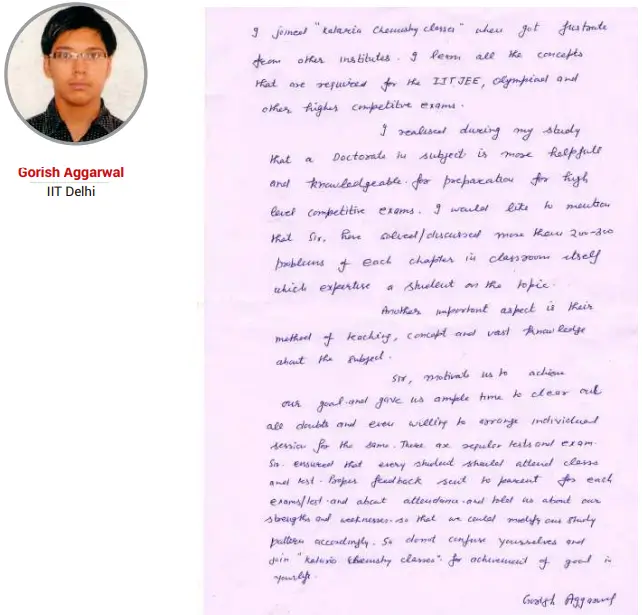 Gorish Aggarwal
IIT Delhi
I joined "Kataria Chemistry Classes" when got fustrate
from other institutes. I learn all the concepts
that are required for the IITJEE, Olympiad and
other higher competitive exams.
I realised during my study
that a Doctorate in subject is more helpfull
and knowledgeable for preparation for high
level competitive exams. I would like to mention
that Sir, have solved/discussed more than 200-300
problems of each chapter in classroom itself
which expertise a student on the topic.
Another important aspect is their
method of teaching, concept and vast knowledge
about the subject.
Sir, motivate us to achieve
our goal and gave us ample time to clear out
all doubts and even willing to arrange individual
session for the same. There are regular tests and exam.
Sir ensured that every student should attend classes
and test. Proper feedback sent to parent for each
exams/test and about attendance and told us about our
strengths and weaknesses so that we could modify our study
pattern accordingly. So donot confuse yourselves and
join "Kataria Chemistry Classes" for achievement of goal in
your life.
Gorish Aggarwal